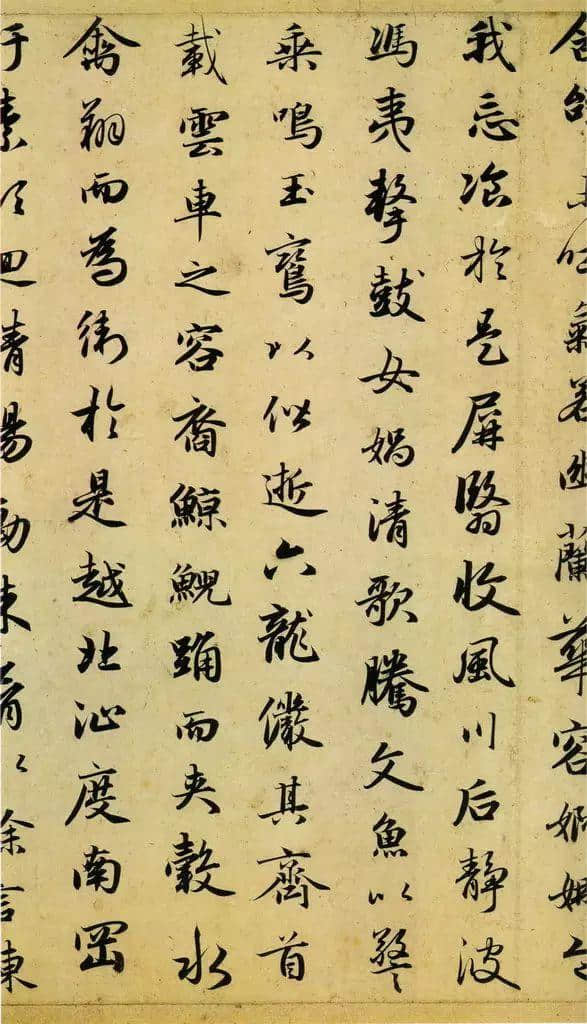 含辭未吐氣若幽蘭華容婀娜令
我忘飡於是屏翳收風川后靜波
馮夷擊鼓女媧清歌騰文魚以警
乘鳴玉鸞以偕逝六龍儼其齊首
載雲車之容裔鯨鯢踊而夾轂水
禽翔而為衛於是越北沚度南岡
素領迴青陽動朱脣以徐言陳